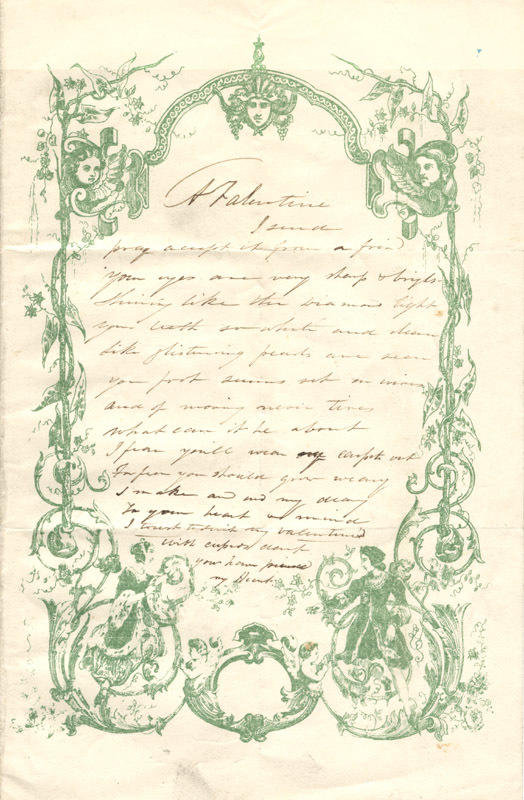 A Valentine
I send
pray accept it from a friend
Your eyes are very sharp & bright
Shining like the diamond light
your teeth so white and clean
like glistening pearls are seen
your foot seems set on wires
and of moving never tires
what can it be about
I fear you'll wear my carpets out
In fear you should grow weary
I make an end my deary
In your heart & mind
I trust to be your valentined
with cupids dart
you have pierced
my Heart